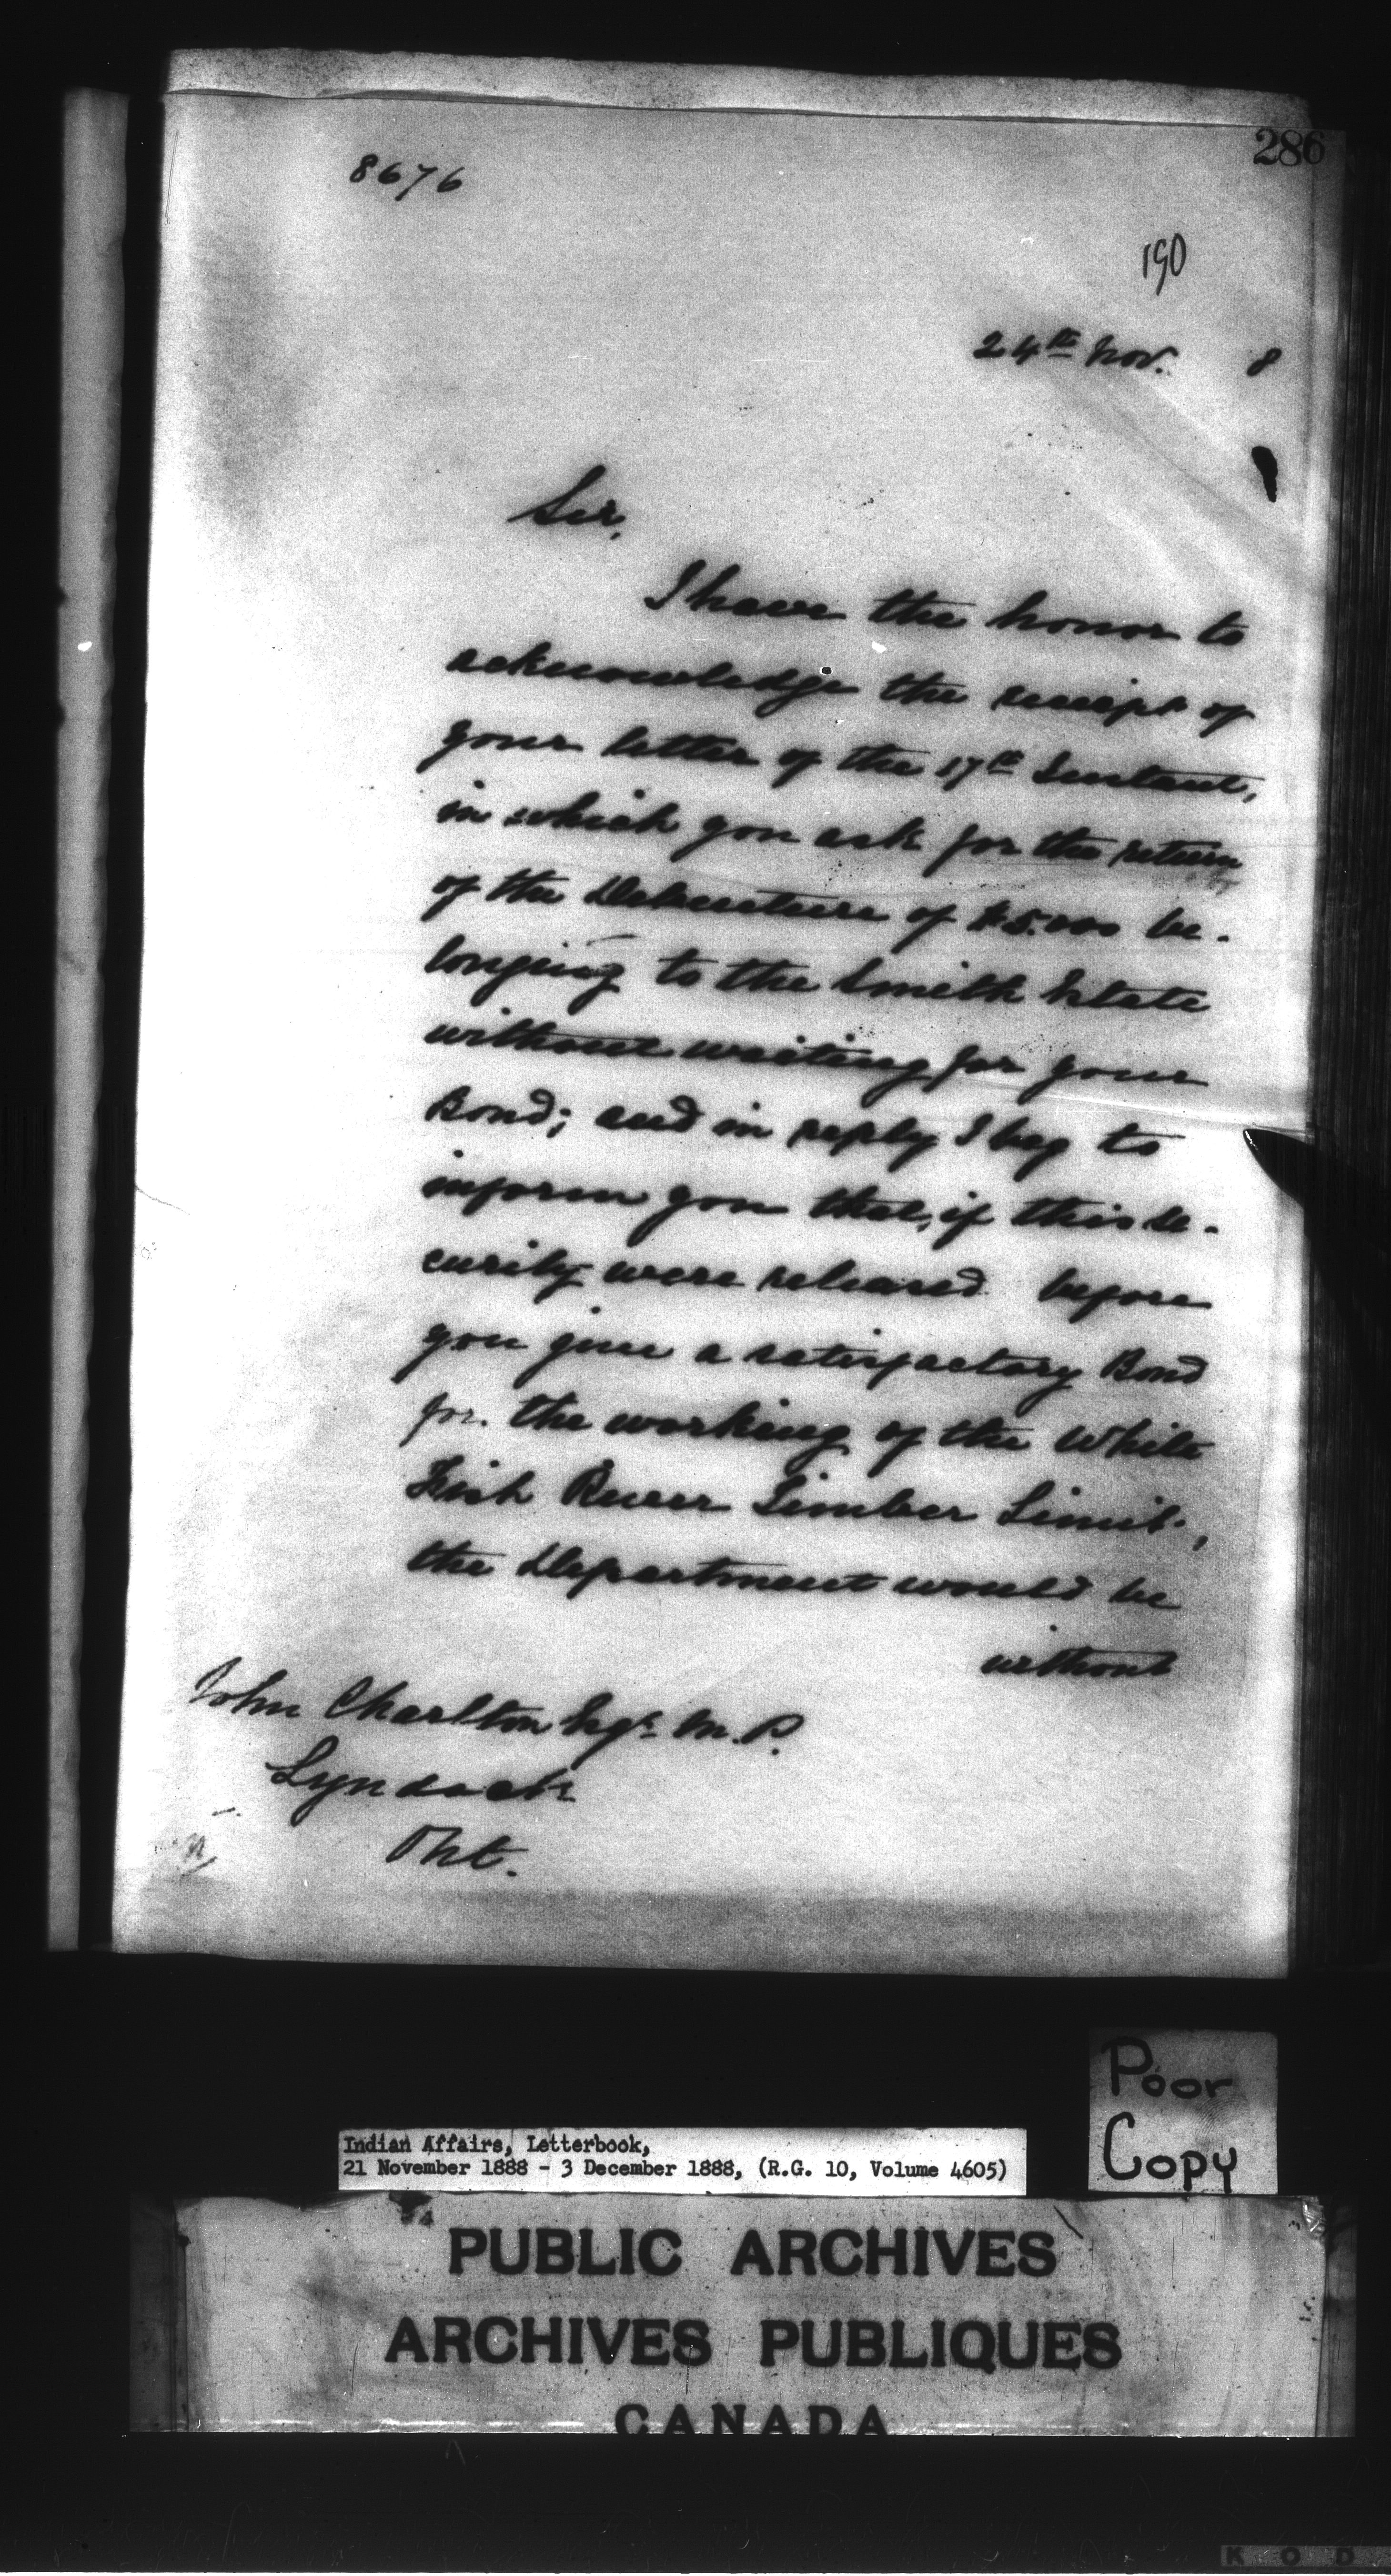 286
8676
190
24th Nov. 8
Sir,
I have the honor to
acknowledge the receipt of
your letter of the 17th Instant,
in which you ask for the return
of the Debenture of $5.000 be-
longing to the Smith Estate
without waiting for your
Bond; and in reply I beg to
inform you that, if this se-
curity were released before
you give a satisfactory Bond
for the working of the White
Fish River Timber Limit,
the Department would be
without
John Charlton Esqr. M.P.
Lyndoch
Ont.
Poor
Copy
Indian Affairs, Letterbook,
21 November 1888 - 3 December 1888, (R.G. 10, Volume 4605)
PUBLIC ARCHIVES
ARCHIVES PUBLIQUES
CANADA
K O D